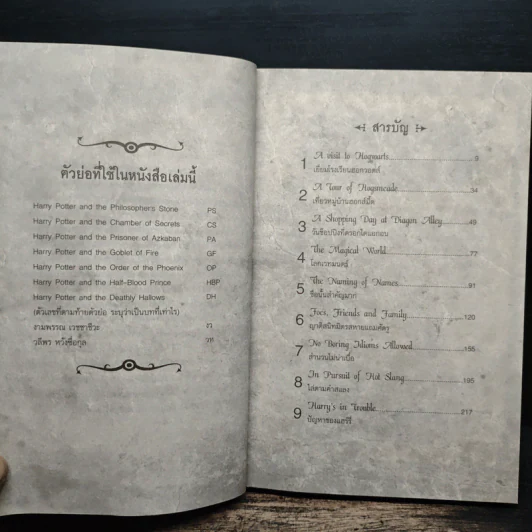 ตัวย่อที่ใช้ในหนังสือเล่มนี้
Harry Potter and the Philosopher's Stone PS
Harry Potter and the Chamber of Secrets CS
Harry Potter and the Prisoner of Azkaban PA
Harry Potter and the Goblet of Fire GF
Harry Potter and the Order of the Phoenix OP
Harry Potter and the Half-Blood Prince HBP
Harry Potter and the Deathly Hallows DH
(ตัวเลขที่ตามท้ายตัวย่อ ระบุว่าเป็นบทที่เท่าไร)
งามพรรณ เวชชาชีวะ ง
วลีพร หวังซื่อกุล วห
สารบัญ
1 A visit to Hogwarts 9
เยี่ยมโรงเรียนฮอกวอตส์
2 A Tour of Hogsmeade 34
เที่ยวหมู่บ้านฮอกส์มี้ด
3 A Shopping Day at Diagon Alley 49
วันช็อปปิงที่ตรอกไดแอกอน
4 The Magical World 77
โลกเวทมนตร์
5 The Naming of Names 91
ชื่อนั้นสำคัญมาก
6 Foes, Friends and Family 120
ญาติสนิทมิตรสหายและศัตรู
7 No Boring Idioms Allowed 155
สำนวนไม่น่าเบื่อ
8 In Pursuit of Hot Slang 195
ไล่ตามคำสแลง
9 Harry's in Trouble 217
ปัญหาของแฮร์รี่